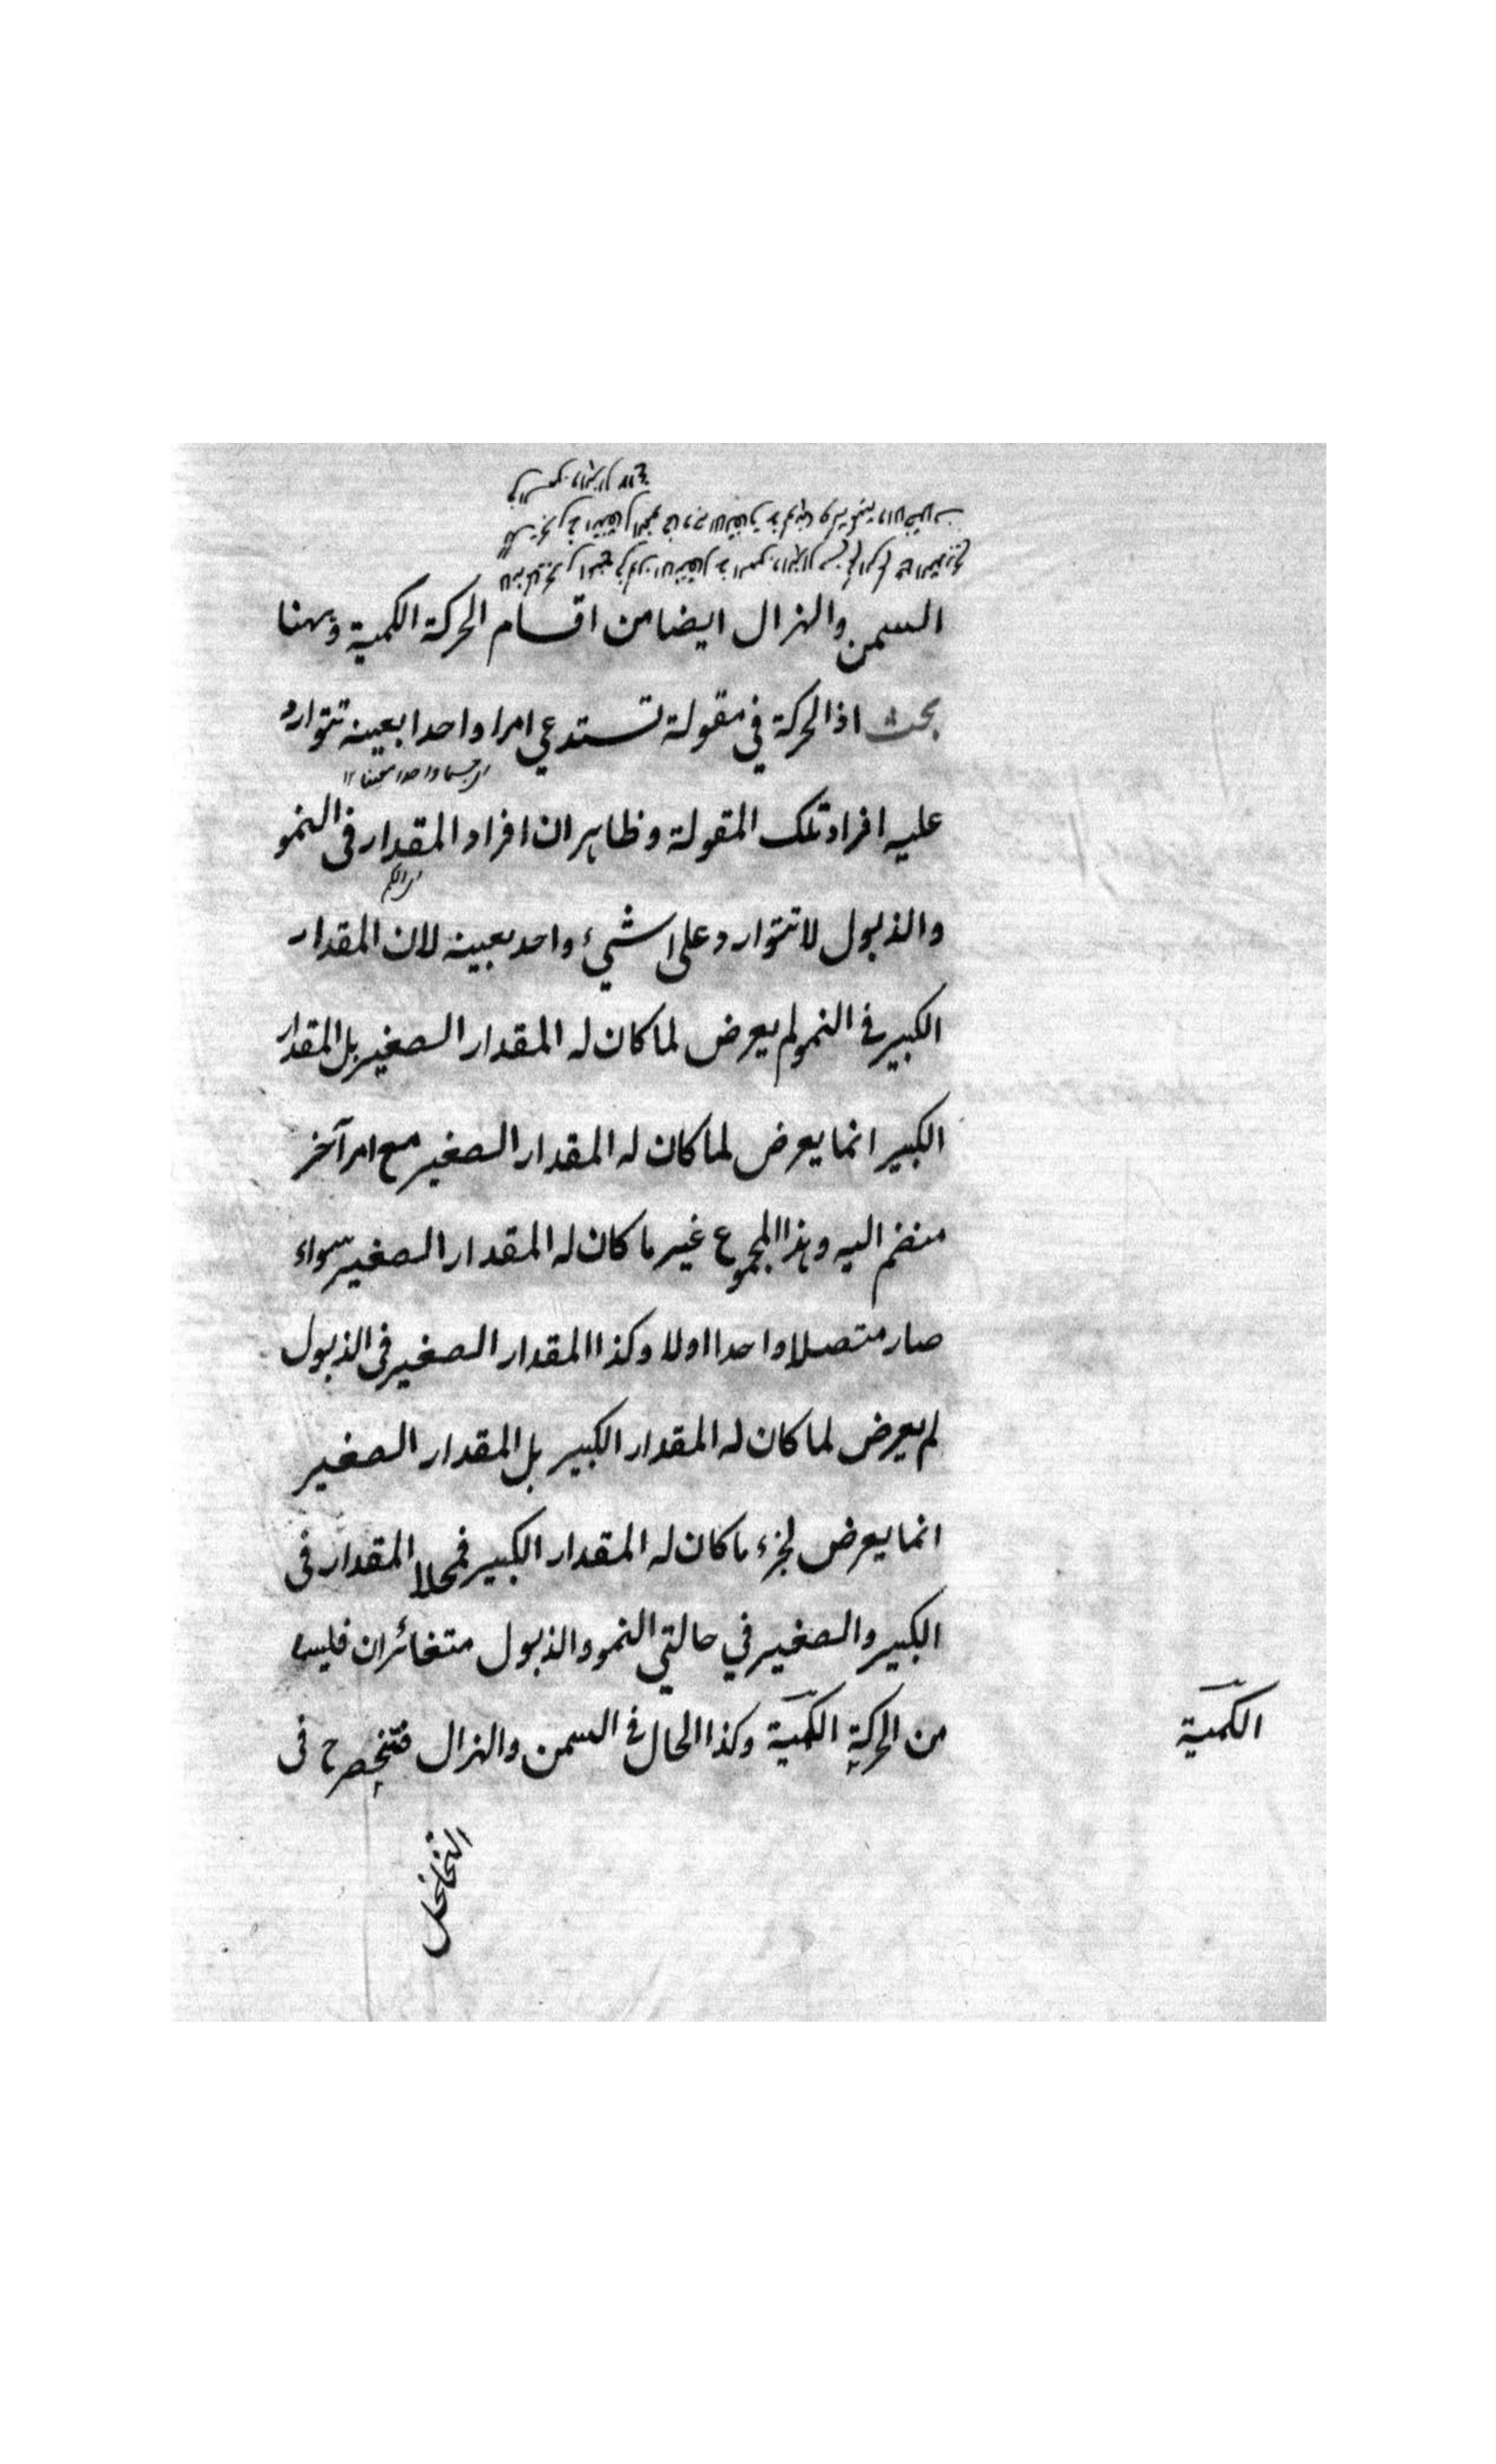 السمن والهزال ايضا من اقسام الحركة الكمية وههنا
بحث اذ الحركة في مقولة تستدعي امرا واحدا بعينه تتوارد
عليه افراد تلك المقولة وظاهر ان افراد المقدار في النمو
والذبول لا تتوارد على شيء واحد بعينه لان المقدار
الكبير في النمو لم يعرض لما كان له المقدار الصغير بل المقدار
الكبير انما يعرض لما كان له المقدار الصغير مع امر آخر
منضم اليه وهذا المجموع غير ما كان له المقدار الصغير سواء
صار متصلا واحدا اولا وكذا المقدار الصغير في الذبول
لم يعرض لما كان له المقدار الكبير بل المقدار الصغير
انما يعرض لجزء ما كان له المقدار الكبير فمحلا المقدار في
الكبير والصغير في حالتي النمو والذبول متغائران فليسا
من الحركة الكمية وكذا الحال في السمن والهزال فتنحصر ح في
الكمية
التخلخل